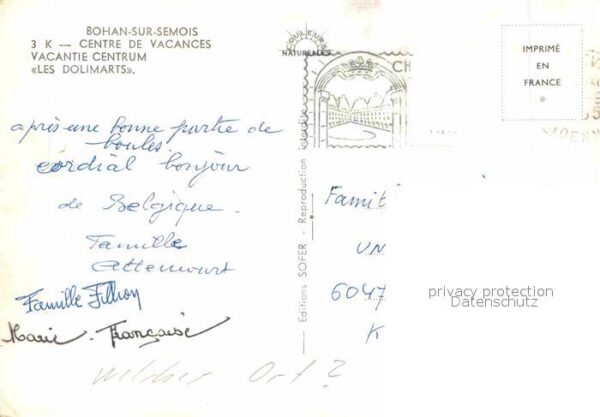 BOHAN-SUR-SEMOIS
3 K — CENTRE DE VACANCES
VACANTIE CENTRUM
«LES DOLIMARTS».
après une bonne partie de
boules
cordial bonjour
de Belgique.
Famille
Famille
Marie-Française
welcher Ort?
COULEURS
NATURELLES
Editions SOFER - Reproduction
CH
IMPRIMÉ
EN
FRANCE
*
Famil
VN
6047
K
privacy protection
Datenschutz